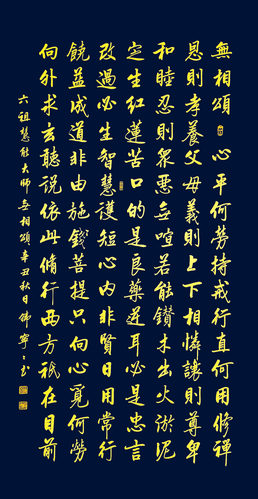 無相頌 心平何勞持戒行直何用脩禪
恩則孝養父母義則上下相憐讓則尊卑
和睦忍則眾惡无喧若能鑽木出火淤泥
定生紅蓮苦口的是良藥逆耳必是忠言
改過必生智慧護短心內非賢日用常行
饒益成道非由施錢菩提只向心覓何勞
向外求玄聽說依此脩行西方祇在目前
六祖慧能大師无相頌辛丑秋日佛寧